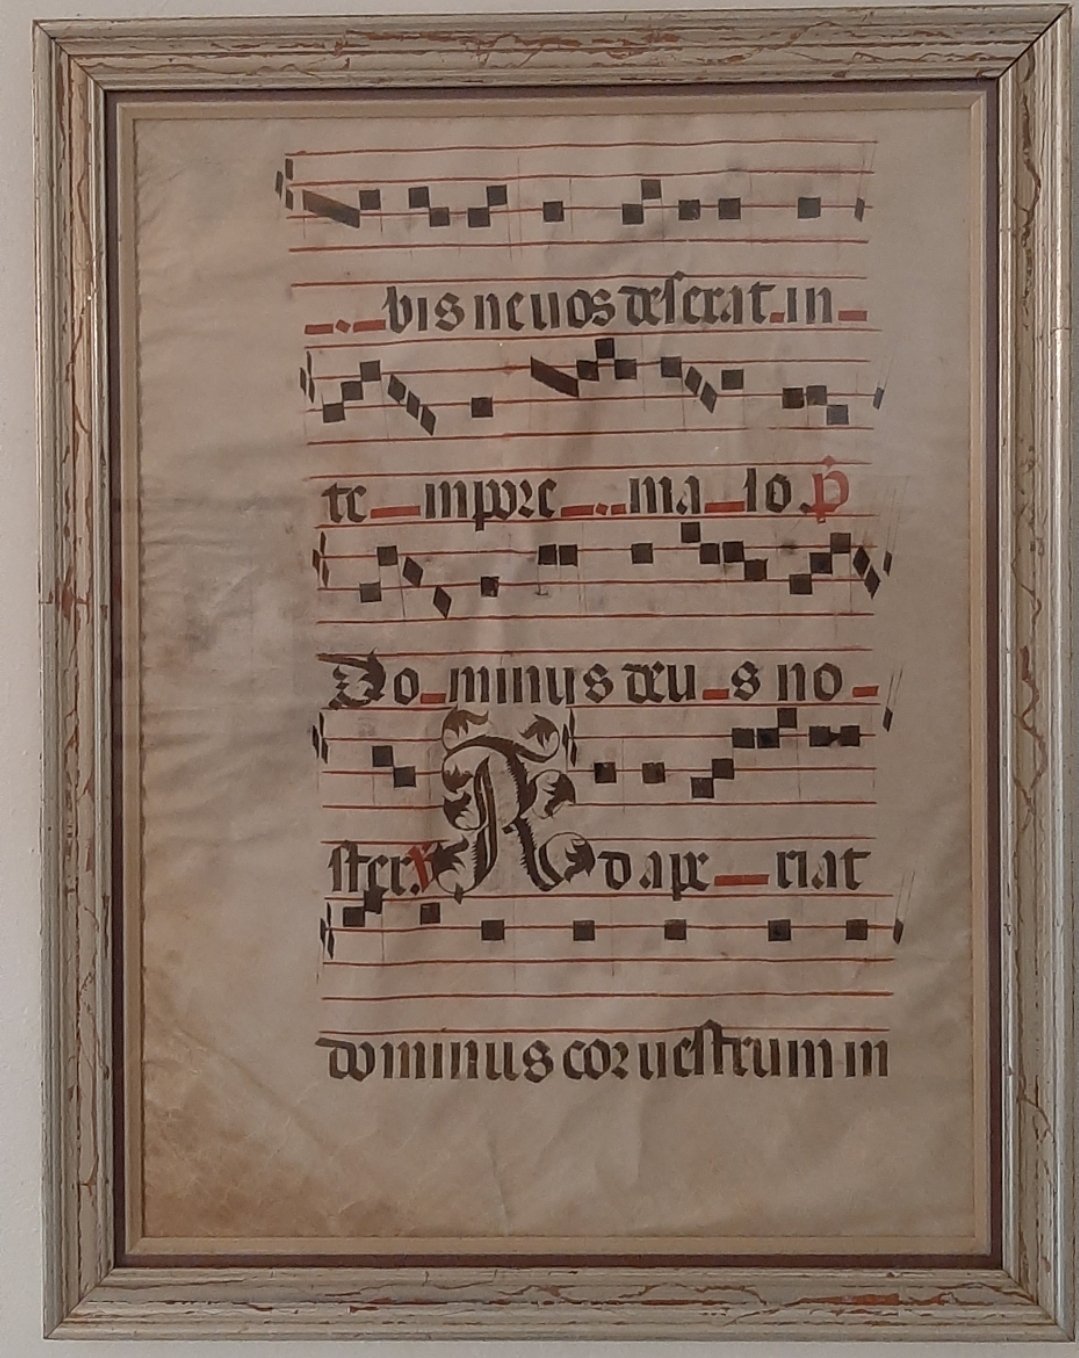 bis ne uos deserat in
te mpore ma lo. p̃
Do minus deu s no
ster. V A d ape riat
dominus cor uestrum in